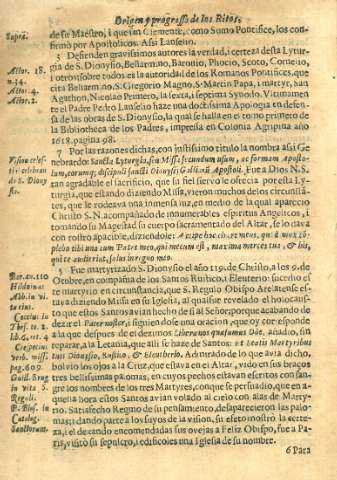 Origen y progresso de los Ritos,
de su Maestro, i que un Clemente, como Sumo Pontifice, los con-
firmò por Apostolicos. Assi Lanselio.
3 Defienden gravissimos autores la verdad, i certeza desta Lytur-
gia de S. Dionysio, Belarmino, Baronio, Phocio, Scoto, Cornelio,
i otros; sobre todos es la autoridad de los Romanos Pontifices, que
cita Belarmino, S. Gregorio Magno, S. Martin Papa, i martyr, San
Agathon, Nicolao Primero, la sexta, septima Synodo. Vltimamen
te el Padre Pedro Lanselio haze una doctissima Apologia en defen-
sa de las obras de S. Dionysio, la qual se halla en el tomo primero de
la Biblioteca de los Padres, impressa en Colonia Agripina año
1618. pagina 98.
Por las razones dichas, con justissimo titulo la nombra assi Ge
nebrardo: Sancta Lyturgia, seu Missæ secundum usum, ac formam Aposto-
lorum, eorumq; discipuli sancti Dionysij Galliarũ Apostoli. Fue a Dios N.S.
tan agradable el sacrificio, que su fiel siervo le ofrecia por esta Ly
turgia, que estando diziendo Missa, vieron muchos de los circunstã
tes, que le rodeava una inmensa luz, en medio de la qual aparecio
Christo S. N. acompañado de innumerables espiritus Angelicos, i
tomando su Magestad su cuerpo Sacramentado del Altar, se lo dava
con rostro apacible, diziendole: Accipe hoc, chare meus, quod mox cõ-
plebo tibi una cum Patre meo, qui mecum est, maxima merces tua, & his,
qui te audierint, salus in regno meo.
5 Fue martyrizado S. Dionysio el año 119. de Christo, a los 9. de
Otubre, en compañia de los Santos Rustico, i Eleuterio: sucedio es
te martyrio en circunstancia, que S. Regulo Obispo Arelatense es-
tava diziendo Missa en su Iglesia, al qual fue revelado el holocaus-
to que estos Santos avian hecho de si al Señor; porque acabando de
dezir el Pater noster, i siguiendole una oracion, que oy corresponde
a la que despues de èl dezimos Libera nos quæsumus Dñe. Añadio, sin
reparar, a la Letania, que alli se haze de Santos: et beatis Martyribus
tuis Dionysio, Rustico, & Eleutherio. Admirado de lo que avia dicho,
bolvio los ojos a la Cruz, que estava en el Altar, i vido en sus braços
tres bellissimas palomas, en cuyos pechos estavan escritos con san-
gre los nombres de los tres Martyres, conque se persuadio, que en a-
quella hora estos Santos avian volado al cielo con alas de Marty-
rio. Satisfecho Regulo de su pensamiento, desaparecieron las palo-
mas; i dando parte a los suyos de la vision, su efeto mostrò la certe-
za, i el dexando encomendadas sus ovejas a Feliz Obispo, fue a Pa-
ris, visitò su sepulcro, i edificoles una Iglesia de su nombre.
6 Para
Suprà.
Actor. 18.
n. 14.
Actor. 4.
Actor. 2.
Vision celes-
tial celebran
do S. Diony
sio.
Bar. an. 110
Hilduin°
Abb. in vi-
ta eius.
Coccius
Thes. te. 2.
lib. 6. ar. 4
verb. miss.
pag. 609.
in vita S.
Reguli.
P. Blas. in
Catalog.
Sanctorum.